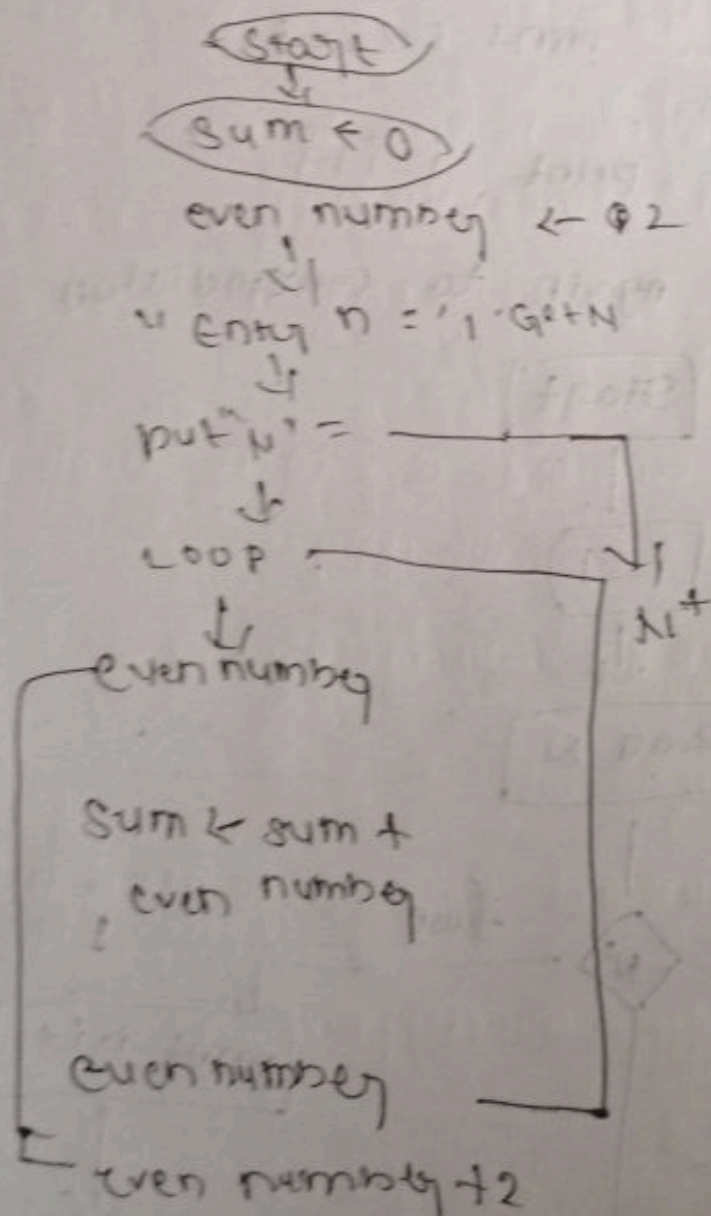 start
sum ← 0
even number ← 2
" Enter n = ", Get N
put "N" =
LOOP
N+
even number
sum ← sum +
even number
even number
even number +2